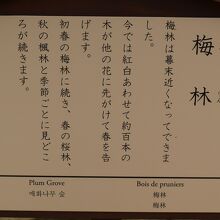 梅林
梅林は幕末近くなってできま
した。
今では紅白あわせて約百本の
木が他の花に先がけて春を告
げます。
初春の梅林に続き、春の桜林、
秋の楓林と季節ごとに見どこ
ろが続きます。
Plum Grove
매화나무 숲
Bois de pruniers
梅林
梅林